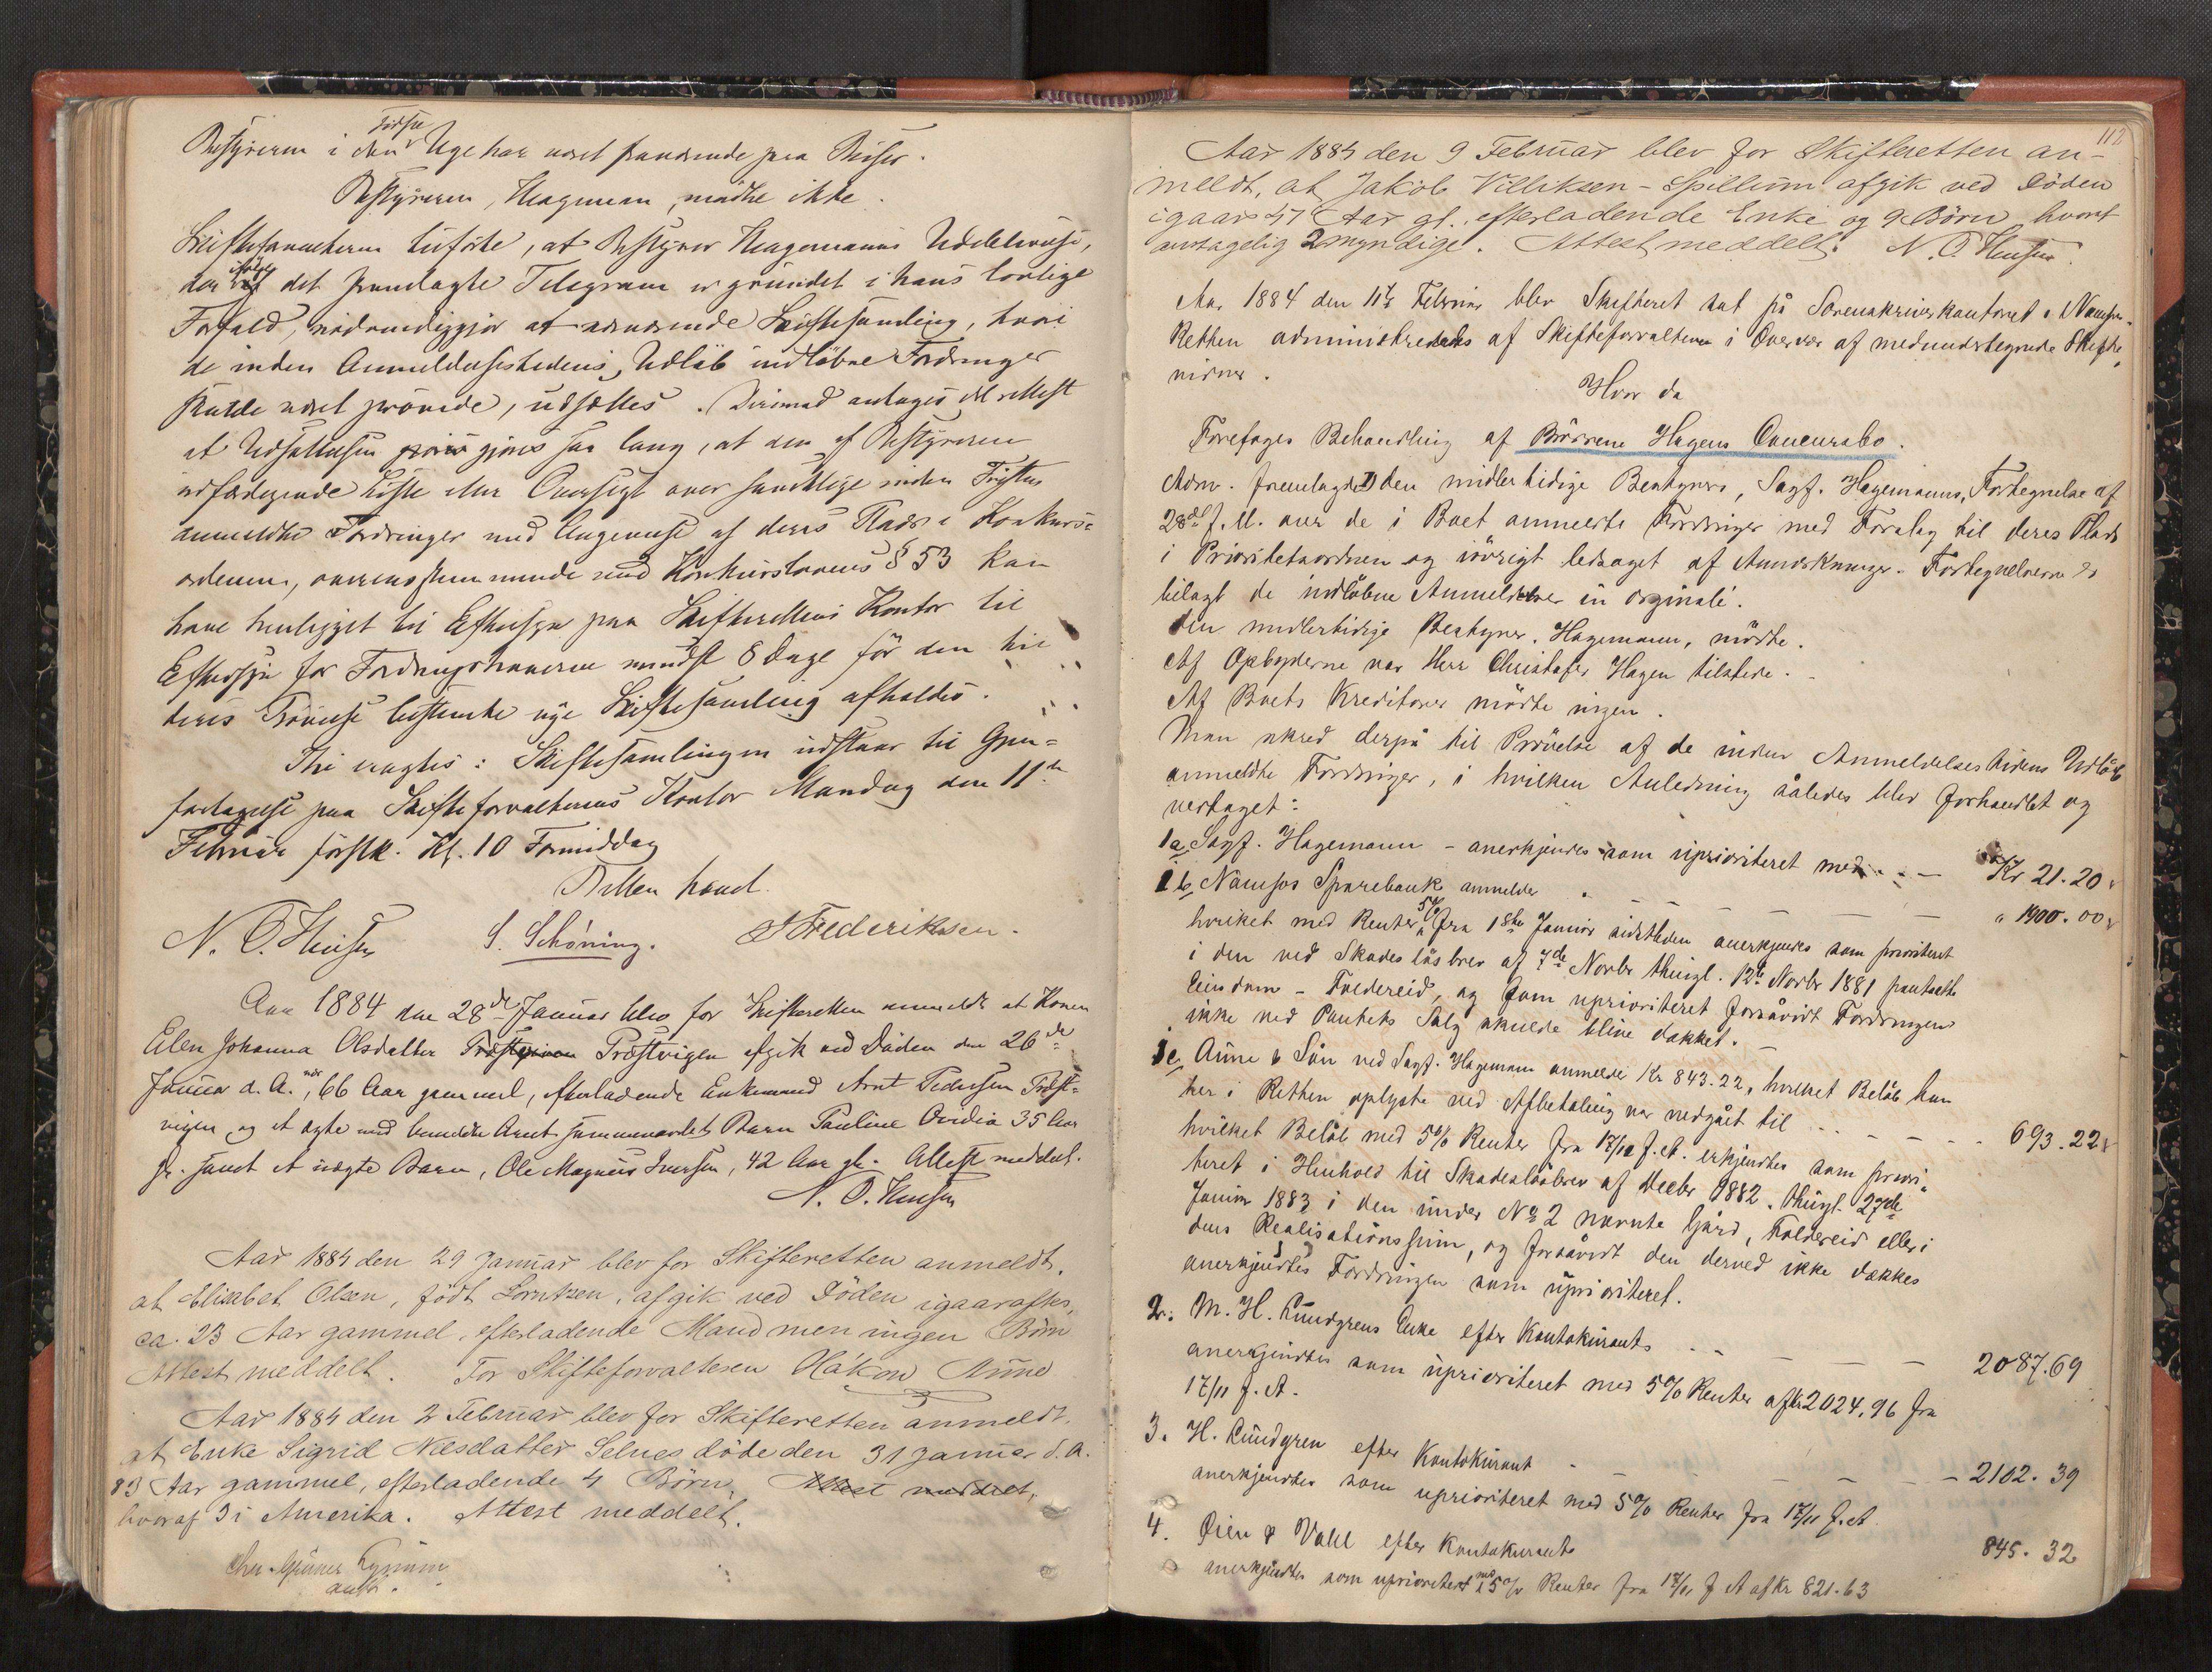 Bestyreren i den sidste Uge har været fraværende paa Reiser.
Bestyreren, Hagemann, mødte ikke.
Skifteforvalteren tilførte, at Bestyrer Hagemanns Udeblivelse,
der ifølge det fremlagte Telegram er grundet i hans lovlige
Forfald, nødvendiggjør at nærværende Skiftesamling, hvori
de inden Anmeldelsestidens Udløb indløbne Fordringer
skulde været prøvede, udsættes. Derimod antages det rettest
at Udsættelsen gjøres saa lang, at den af Bestyreren
udfærdigende Liste eller Oversigt over samtlige inden Fristen
anmeldte Fordringer med Angivelse af deres Plads i Konkurs-
ordenen, overensstemmende med Konkurslovens § 53 kan
have henligget til Eftersyn paa Skifterettens Kontor til
Eftersyn for Fordringshaverne mindst 8 Dage før den til
deres Prøvelse bestemte nye Skiftesamling afholdes.
Thi eragtes: Skiftesamlingen udstaar til Gjen-
foretagelse paa Skifteforvalterens Kontor Mandag den 11te
Februar førstk. Kl. 10 Formiddag
Retten hævet.
N. O. Hensen S. Schöning. Frederiksen.
Aar 1884 den 28de Januar blev for Skifteretten anmeldt at Konen
Elen Johanna Olsdatter Præstvigen afgik ved Døden den 26de
Januar d. A., nær 66 Aar gammel, efterladende Enkemand Arnt Pedersen Præst-
vigen og et ægte med bemeldte Arnt sammenavlet Barn Pauline Ovidia 35 Aar
gl. samt et uægte Barn, Ole Magnus Iversen, 42 Aar gl. Attest meddelt.
N. O. Hensen
Aar 1884 den 29 Januar blev for Skifteretten anmeldt,
at Elisabet Olsen, født Lorntzen, afgik ved Døden igaaraftes,
ca. 23 Aar gammel, efterladende Mand men ingen Børn
Attest meddelt. For Skifteforvalteren Håkon Aune
Aar 1884 den 2 Februar blev for Skifteretten anmeldt,
at Enke Sigrid Nilsdatter Selnes døde den 31 Januar d. A.
83 Aar gammel, efterladende 4 Børn, Attest meddelt,
hvoraf 3 i Amerika. Attest meddelt.
112
Aar 1884 den 9 Februar blev for Skifteretten an-
meldt, at Jakob Villiksen-Spillum afgik ved Døden
igaar 47 Aar gl., efterladende Enke og 9 Børn hvoraf
antagelig 2 myndige. Attest meddelt. N. O. Hensen
Aar 1884 den 11te Februar blev Skifteret sat på Sorenskriverkontoret i Namsos
Retten administreredes af Skifteforvalteren i Overvær af medundertegnede Skifte
vidner.
Hvor da
Foretoges Behandling af Brödrene Hagens Concursbo.
Adm. fremlagde 1) den midlertidige Bestyrers, Sagf. Hagemanns, Fortegnelse af
28de f. M. over de i Boet anmeldte Fordringer med Forslag til deres Plads
i Prioritetsordnen og iövrigt ledsaget af Anmærkninger. Fortegnelserne er
bilagt de indlöbne Anmeldelser in originale.
Den midlertidige Bestyrer, Hagemann, mödte.
Af Opbyderne var Herr Christofer Hagen tilstede.
Af Boets Kreditorer mödte ingen.
Man skred derpå til Prövelse af de inden Anmeldelsestidens Udlöb
anmeldte Fordringer, i hvilken Anledning således blev forhandlet og
vedtaget:
1a, Sagf. Hagemann - anerkjendes som uprioriteret med - Kr 21.20
1b, Namsos Sparebank anmeldte - " 1900.00
hvilket med Renter 5% fra 1ste Januar sidstleden anerkjendes som prioriteret
i den ved Skadeslösbrev af 7de Novbr thingl. 12te Novbr 1881 pantsatte
Eiendom - Foldereid, og som uprioriteret forsåvidt Fordringen
ikke ved Pantets Salg skulde blive dækket.
1c, Aune & Sön ved Sagf. Hagemann anmeldte Kr 843.22, hvilket Belöb han
her i Retten oplyste ved Afbetaling var nedgået til - 693.22
hvilket Belöb med 5% Renter fra 17/12 f. A. erkjendtes som priori-
teret i Henhold til Skadeslösbrev af Decbr 1882. thingl. 27de
Januar 1883 i den under No 2 nævnte Gård, Foldereid eller i
dens Realisationssum, og forsåvidt den derved ikke dækkes
anerkjendtes Fordringen som uprioriteret.
2. M. H. Lundgrens Enke efter Kontokurant - 2087.69
anerkjendtes som uprioriteret med 5% Renter af Kr 2024,96 fra
17/11 f. A.
3. H. Lundgren efter Kontokurant - 2102.39
anerkjendtes som uprioriteret med 5% Renter fra 17/11 f. A
4. Øien & Wahl efter Kontokurant 845.32
anerkjendtes som uprioriteret med 5% Renter fra 17/11 f A af Kr 821.63